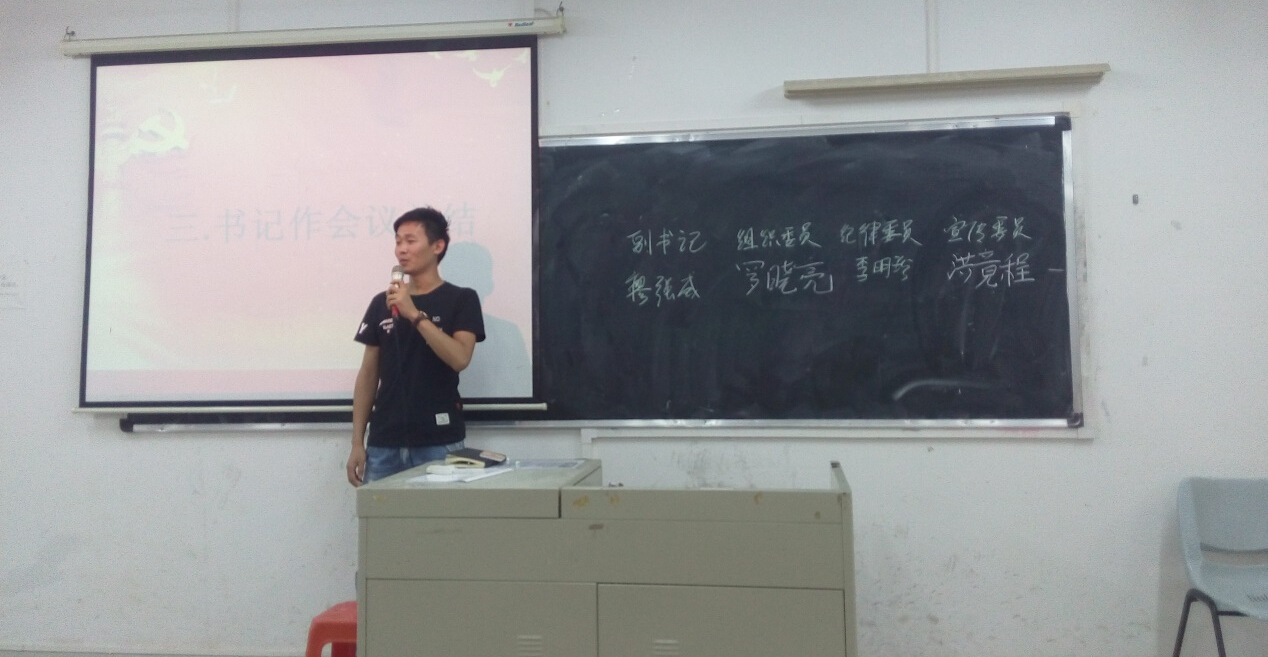 三.书记作会议 结
副书记 组织委员 纪律委员 宣传委员
穆强威 罗晓亮 李明珍 洪竟程